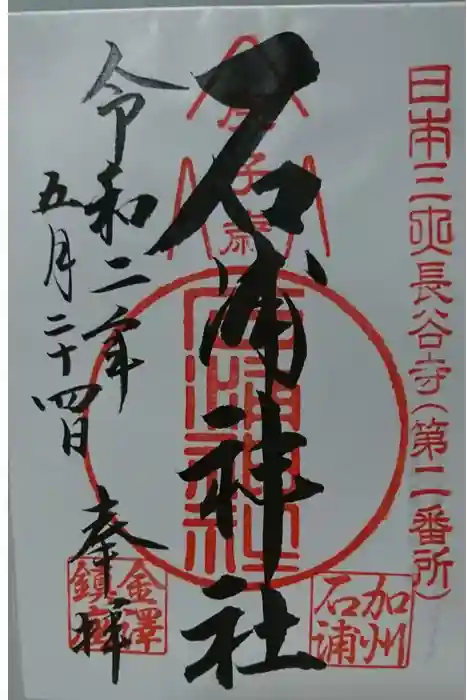 日本三大長谷寺(第二番所)
石浦神社
石浦神社
加州
石浦
令和二年
五月二十四日
奉拝
金澤